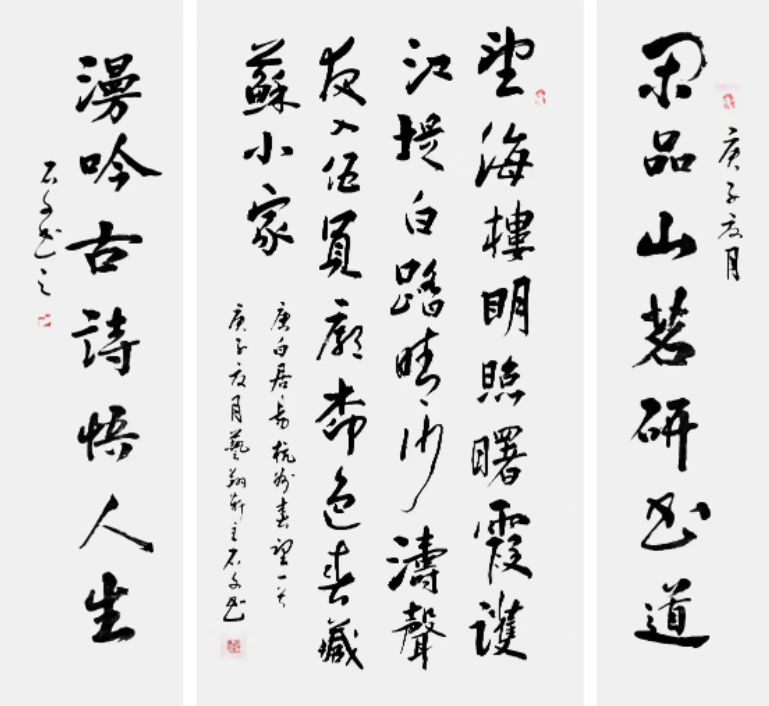 庚子夏月
閑品山茗研書道
望海樓明照曙霞護
江堤白踏晴沙濤聲
夜入伍員廟柳色春藏
蘇小家
唐白居易杭州春望一首
庚子夏月藝翔軒主石文書
漫吟古詩悟人生
石文書之